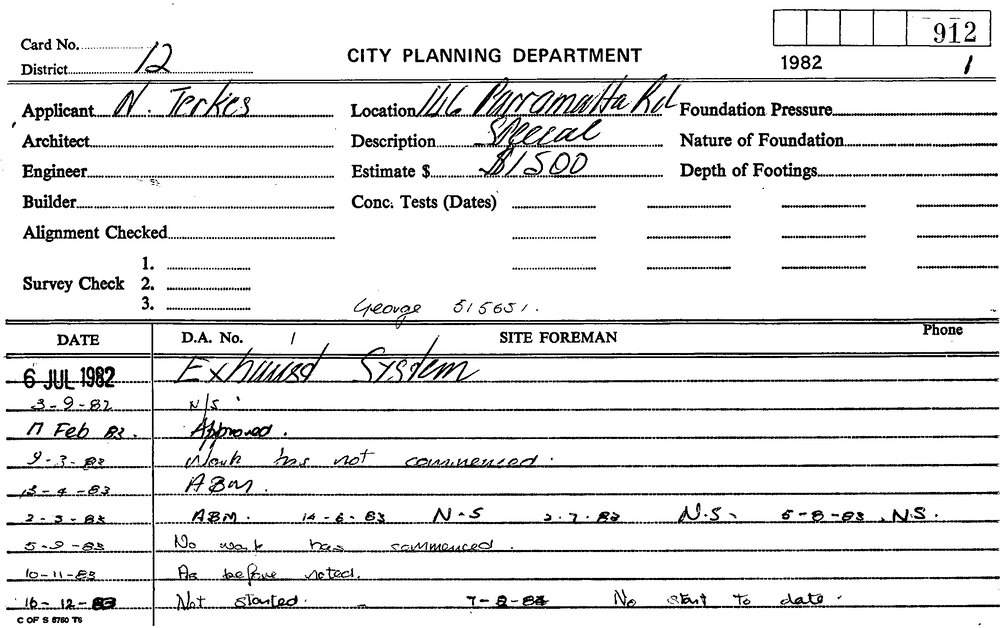 912
Card No.
District 12
CITY PLANNING DEPARTMENT
1982 1
Applicant N. Terkies Location 146 Parramatta Rd Foundation Pressure
Architect Description Special Nature of Foundation
Engineer Estimate $ $1500 Depth of Footings
Builder Conc. Tests (Dates)
Alignment Checked
1.
Survey Check 2.
3.
George 515651.
DATE D.A. No. 1 SITE FOREMAN Phone
6 JUL 1982 Exhaust System
3-9-82 N/S
17 Feb 83. Approved.
9-3-83 Work has not commenced.
13-4-83 ABM.
2-5-83 ABM. 14-6-83 N-S 2-7-83 N.S. 5-8-83 N.S.
5-9-83 No work has commenced.
10-11-83 As before noted.
16-12-83 Not started. 7-2-84 No start to date.
C OF S 6760 T6